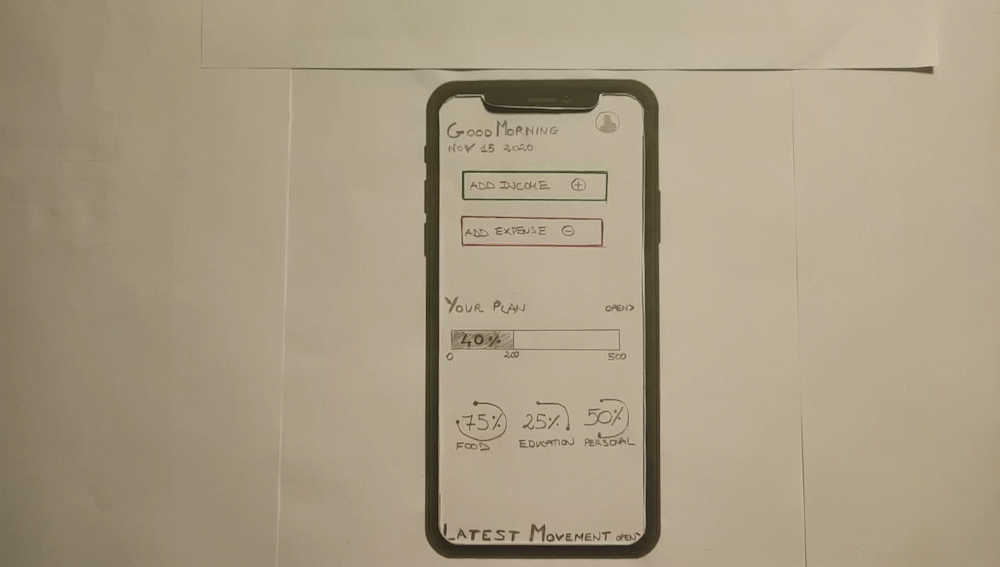 GOOD MORNING
NOV 15 2020
ADD INCOME +
ADD EXPENSE -
YOUR PLAN OPEN>
40%
0 200 500
75% 25% 50%
FOOD EDUCATION PERSONAL
LATEST MOVEMENT OPEN>